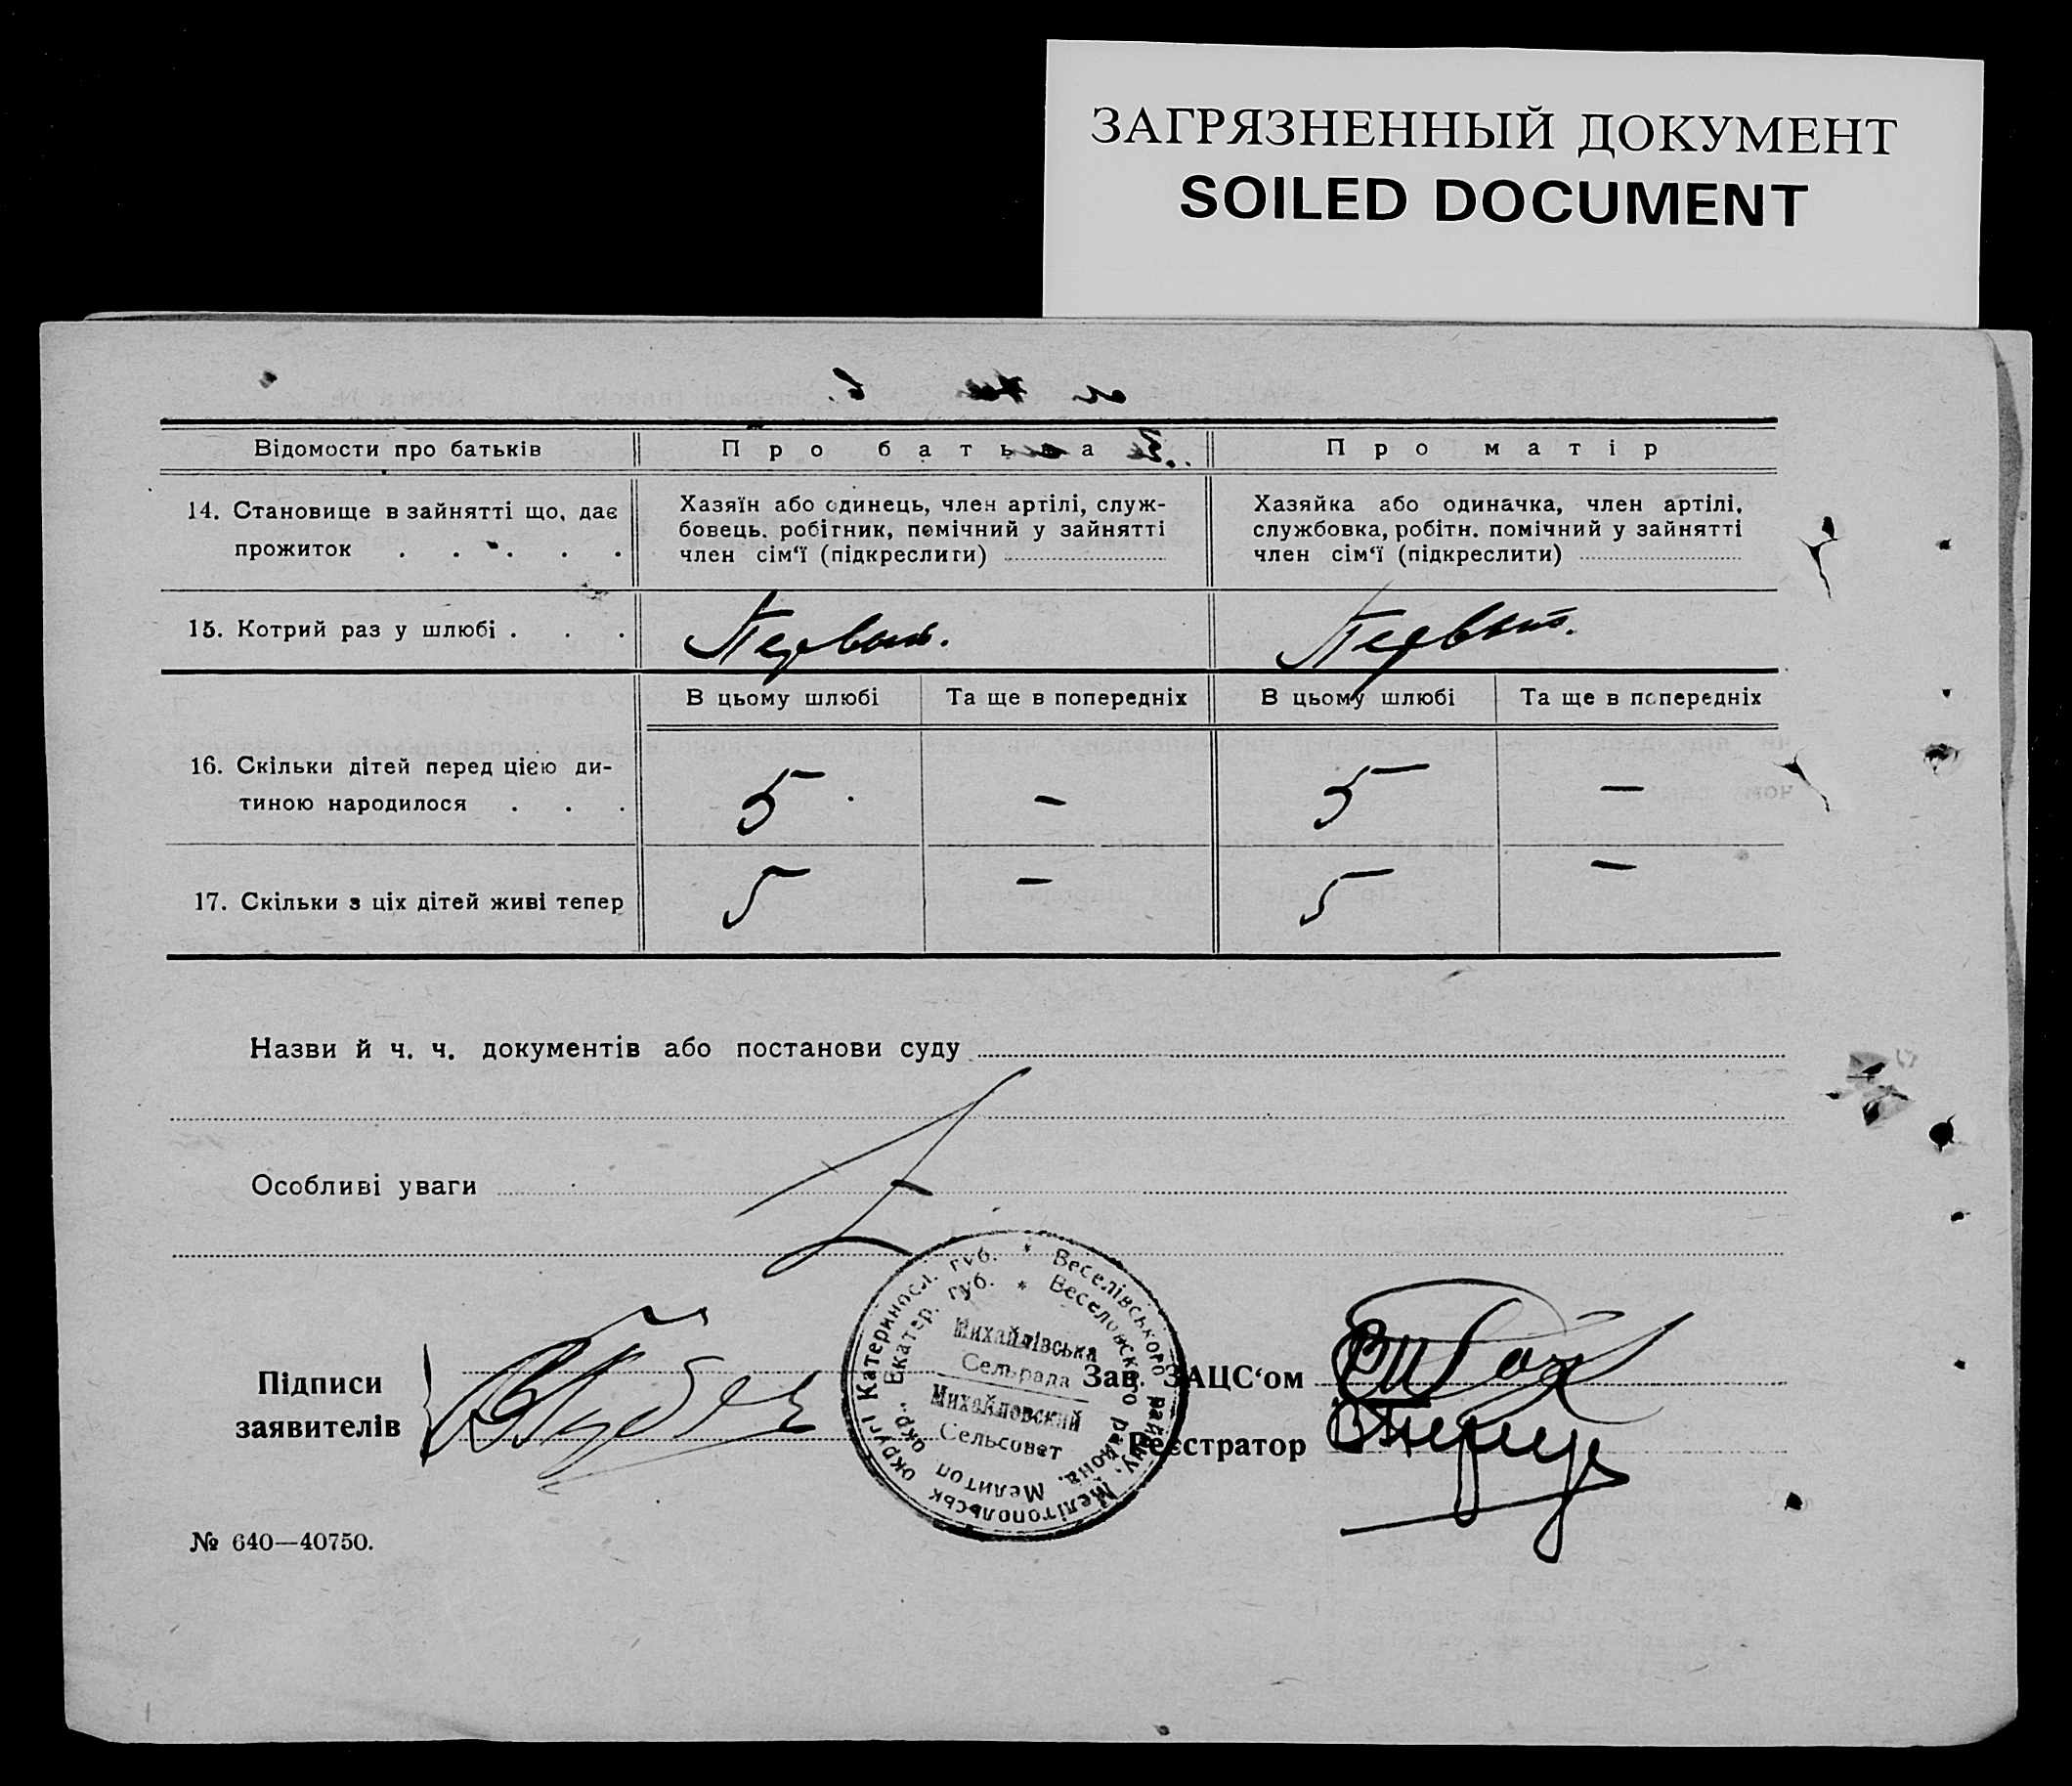 ЗАГРЯЗНЕННЫЙ ДОКУМЕНТ
SOILED DOCUMENT
Відомости про батьків Про батька Про матір
14. Становище в зайнятті що, дає прожиток . . . . .
Хазяїн або одинець, член артілі, служ-
бовець. робітник, помічний у зайнятті
член сім‘ї (підкреслити)
Хазяйка або одиначка, член артілі,
службовка, робітн. помічний у зайнятті
член сім‘ї (підкреслити)
15. Котрий раз у шлюбі . . . Первый. Первый.
В цьому шлюбі Та ще в попередніх В цьому шлюбі Та ще в попередніх
16. Скільки дітей перед цією ди-
тиною народилося . . . 5 – 5 –
17. Скільки з ціх дітей живі тепер 5 – 5 –
Назви й ч. ч. документів або постанови суду
Особливі уваги
Підписи
заявителів
Катериносл. губ. * Веселівського райну, Мелітопольськ округі
Екатер. губ. * Веселовского района, Мелитоп окр.
Михайлівська
Сельрада
Михайловский
Сельсовет
Зав. ЗАЦС‘ом
Реєстратор
№ 640—40750.